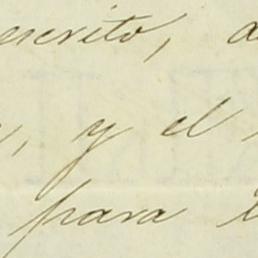 escrito,
, y el
para